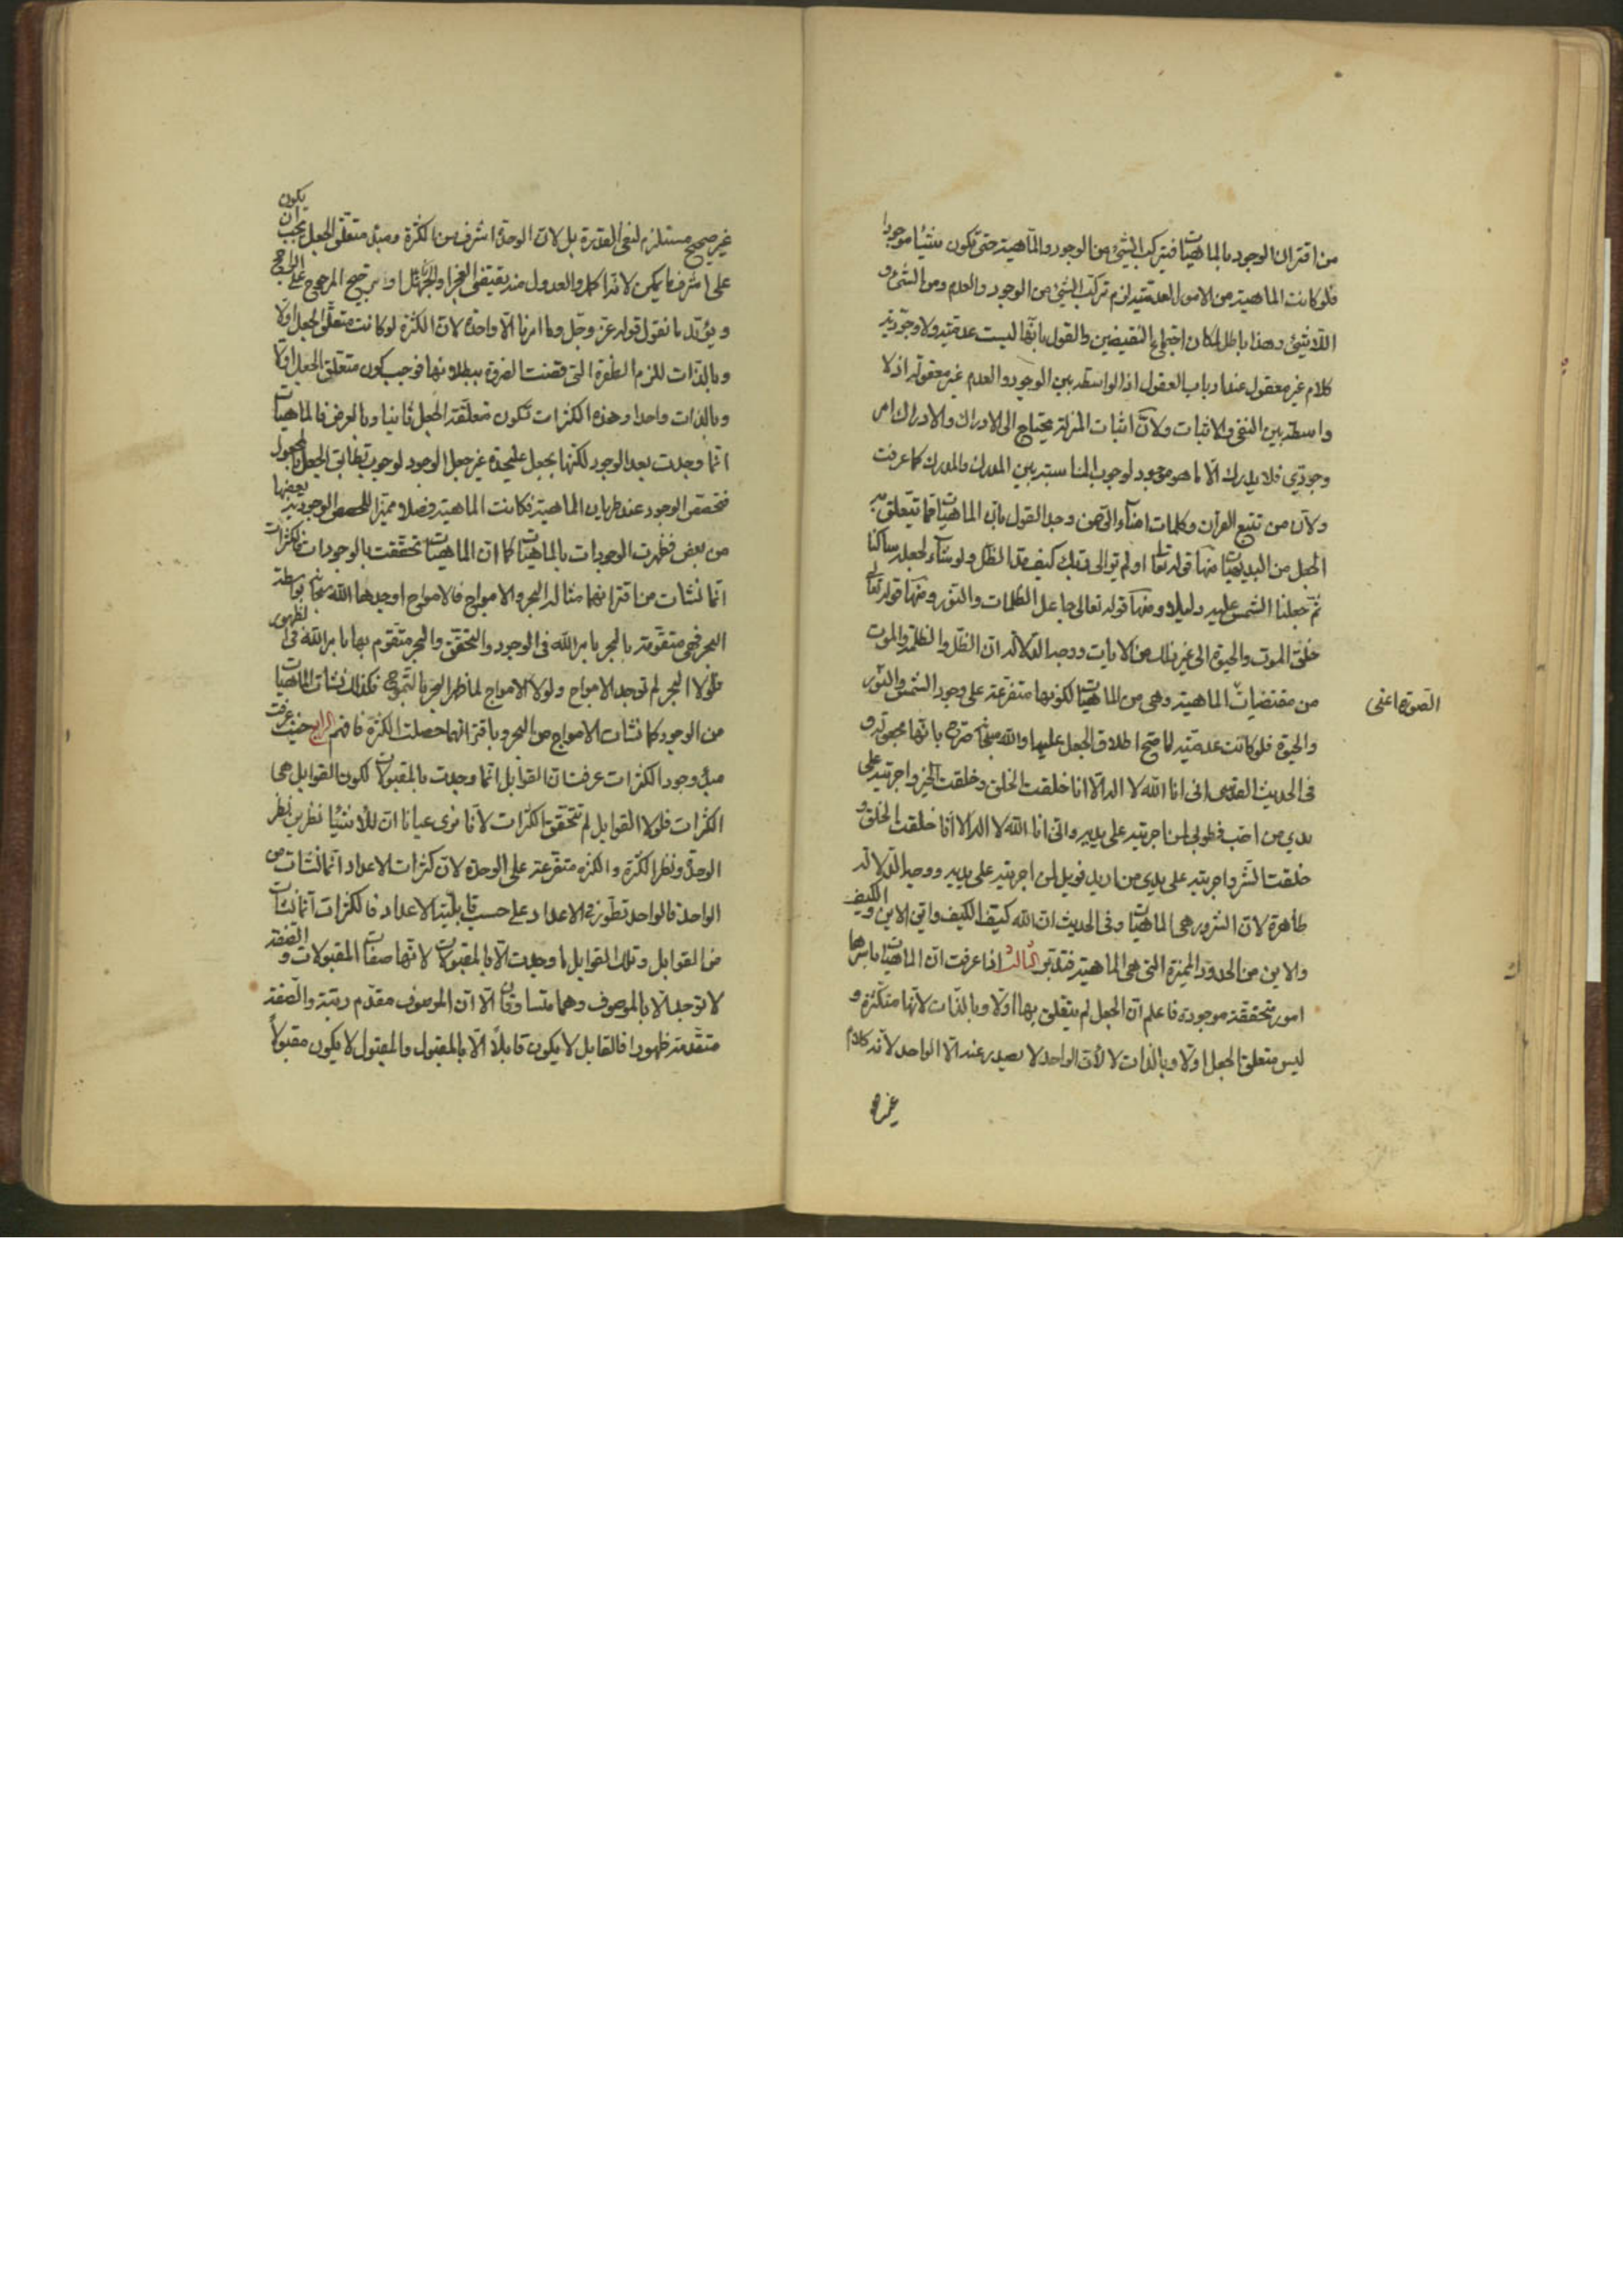 من اقتران الوجود بالماهيات فيتركب الشيئ من الوجود والماهية حتى تكون شيئا موجودا
فلو كانت الماهية من الامور العدمية لزم تركب الشيئ من الوجود والعدم ومن الشيئ و
اللاشيئ وهذا باطل لمكان اجتماع النقيضين والقول بانها ليست عدمية ولا وجودية
كلام غير معقول عند ارباب العقول اذ الواسطة بين الوجود والعدم غير معقولة اذ لا
واسطة بين النفي والاثبات ولان اثبات المنزلة يحتاج الى الادراك والادراك امر
وجودي فلا يدرك الا ما هو موجود لوجوب المناسبة بين المدرك والمدرك كما عرفت
ولان من تتبع القرآن وكلمات امناء الرحمن وجد القول بان الماهيات مما تتعلق به
الجعل من البديهيات منها قوله تعا اولم تر الى ربك كيف مد الظل ولو شاء لجعله ساكنا
ثم جعلنا الشمس عليه دليلا ومنها قوله تعالى جاعل الظلمات والنور ومنها قوله تعالى
خلق الموت والحيوة الى غير ذلك من الايات ووجه الدلالة ان الظل والظلمة والموت
من مقتضيات الماهية وهي من الماهيات لكونها متفرعة على وجود الشمس والنور
الصورة اعنى
والحيوة فلو كانت عدمية لما صح اطلاق الجعل عليها والله سبحانه صرح بانها مجعولة و
فى الحديث القدسى انى انا الله لا اله الا انا خلقت الخلق وخلقت الخير واجريته على
يدي من احب فطوبى لمن اجريته على يديه وانى انا الله لا اله الا انا خلقت الخلق و
خلقت الشر واجريته على يدي من اريد فويل لمن اجريته على يديه ووجه الدلالة
ظاهرة لان الشرور هى الماهيات وفى الحديث ان الله كيف الكيف واين الاين والكيف
والاين من الحدود المميزة التى هى الماهية فتدبر الثالث اذا عرفت ان الماهيات باسرها
امور متحققة موجودة فاعلم ان الجعل لم يتعلق بها اولا وبالذات لانها متكثرة و
ليس متعلق الجعل اولا وبالذات لا لأن الواحد لا يصدر عنه الا الواحد لانه كلام
غير صحيح مستلزم لنفى القدرة بل لان الوحدة اشرف من الكثرة ومبدء متعلق الجعل يجب ان يكون
على اشرف ما يمكن لانه اكمل والعدول منه يقتضى العجز او الجهل او ترجيح المرجوح على الراجح
ويؤيد ما نقول قوله عز وجل وما امرنا الا واحدة لان الكثرة لو كانت متعلق الجعل اولا
وبالذات للزم الطفرة التى قضت الضرورة ببطلانها فوجب كون متعلق الجعل اولا
وبالذات واحدا وهذه الكثرات تكون متعلقة الجعل ثانيا وبالعرض فالماهيات
انما وجدت بعد الوجود لكنها بجعل عليحدة غير جعل الوجود لوجوب تطابق الجعل بالمجعول
فتحصص الوجود عند طريان الماهية فكانت الماهية فصلا مميزا للحصص الوجودية بعضها
من بعض فظهرت الوجودات بالماهيات كما ان الماهيات تحققت بالوجودات فالكثرات
انما نشات من اقترانهما مثاله البحر والامواج فالامواج اوجدها الله سبحانه بواسطة
البحر فهى متقومة بالبحر بامر الله فى الوجود والتحقق والبحر متقوم بها بامر الله فى الظهور
فلولا البحر لم توجد الامواج ولولا الامواج لما ظهر البحر بالتموج فكذلك نشات الماهيات
من الوجود كما نشات الامواج من البحر وباقترانهما حصلت الكثرة فافهم الرابع حيث عرفت
مبدء وجود الكثرات عرفت ان القوابل انما وجدت بالمقبولات لكون القوابل هى
الكثرات فلولا القوابل لم تتحقق الكثرات لانا نرى عيانا ان للاشياء نظرين نظر
الوحدة ونظر الكثرة والكثرة متفرعة على الوحدة لان كثرات الاعداد انما نشات من
الواحد فالواحد تطور فى الاعداد على حسب قابلية الاعداد فالكثرات انما نشات
من القوابل وتلك القوابل ما وجدت الا بالمقبولات لانها صفات المقبولات والصفة
لا توجد الا بالموصوف وهما متساوقان الا ان الموصوف مقدم رتبة والصفة
متقدمة ظهورا فالقابل لا يكون قابلا الا بالمقبول والمقبول لا يكون مقبولا